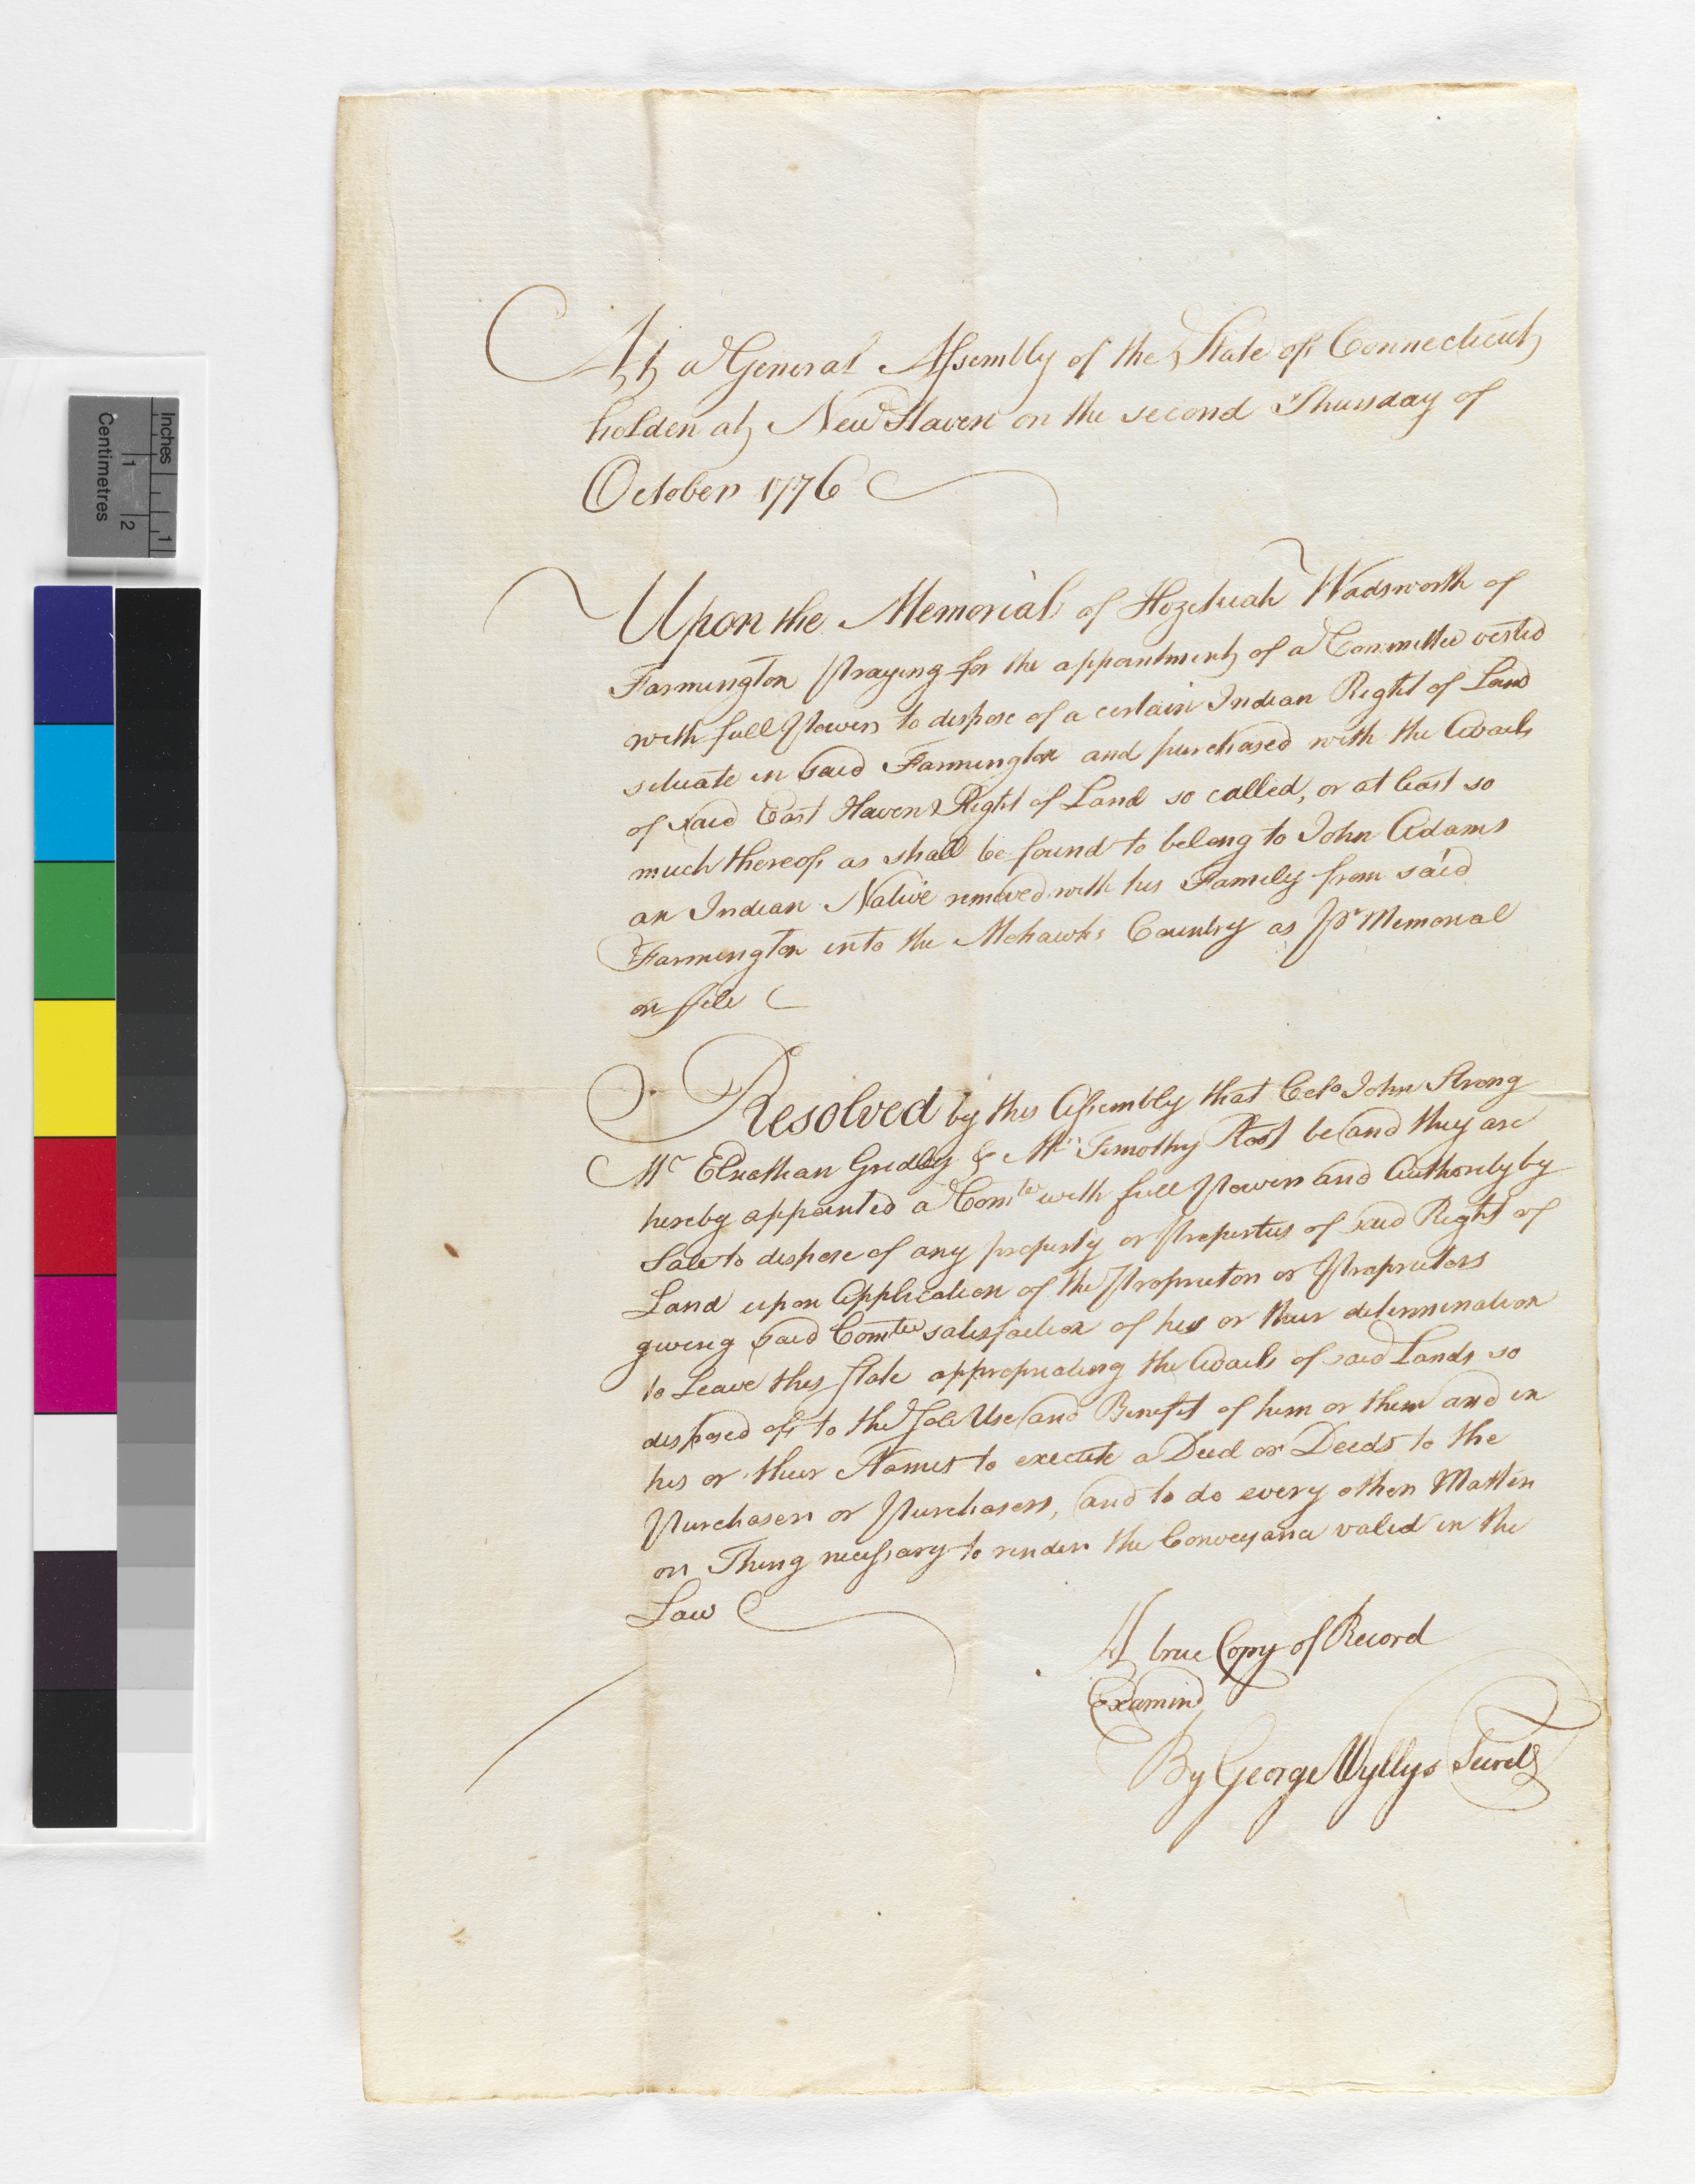 Inches
1
Centimetres
1
2
At a General Assembly of the State of Connecticut
holden at New Haven on the second Thursday of
October 1776
Upon the Memorial of Hezekiah Wadsworth of
Farmington Praying for the appointment of a Committee vested
with full Power to dispose of a certain Indian Right of Land
situate in said Farmington and purchased with the Avails
of said East Haven Right of Land so called, or at least so
much thereof as shall be found to belong to John Adams
an Indian Native removed with his Family from said
Farmington into the Mohawks Country as Pr Memorial
on file
Resolved by this Assembly that Colo John Strong
Mr Elnathan Gridley & Mr Timothy Root be and they are
hereby appointed a Comtee with full Power and Authority by
Sale to dispose of any property or Properties of said Right of
Land upon Application of the Proprietor or Proprietors
giving said Comtee satisfaction of his or their determination
to Leave this State appropriating the Avails of said Lands so
disposed of to the Sole Use and Benefit of him or them and in
his or their Names to execute a Deed or Deeds to the
Purchaser or Purchasers, and to do every other Matter
or Thing necessary to render the Conveyance valid in the
Law
A true Copy of Record
Examind
By George Wyllys Secrety